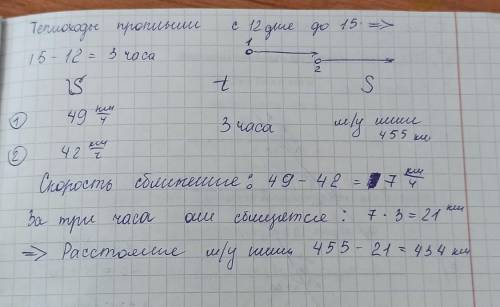 Теплоходы проплыли с 12 дня до 15 =>
15 - 12 = 3 часа
1
2
V t S
① 49 км/ч
3 часа м/у ними 455 км
② 42 км/ч
Скорость сближения: 49 - 42 = 7 км/ч
За три часа они сблизятся: 7 · 3 = 21 км
=> Расстояние м/у ними 455 - 21 = 434 км